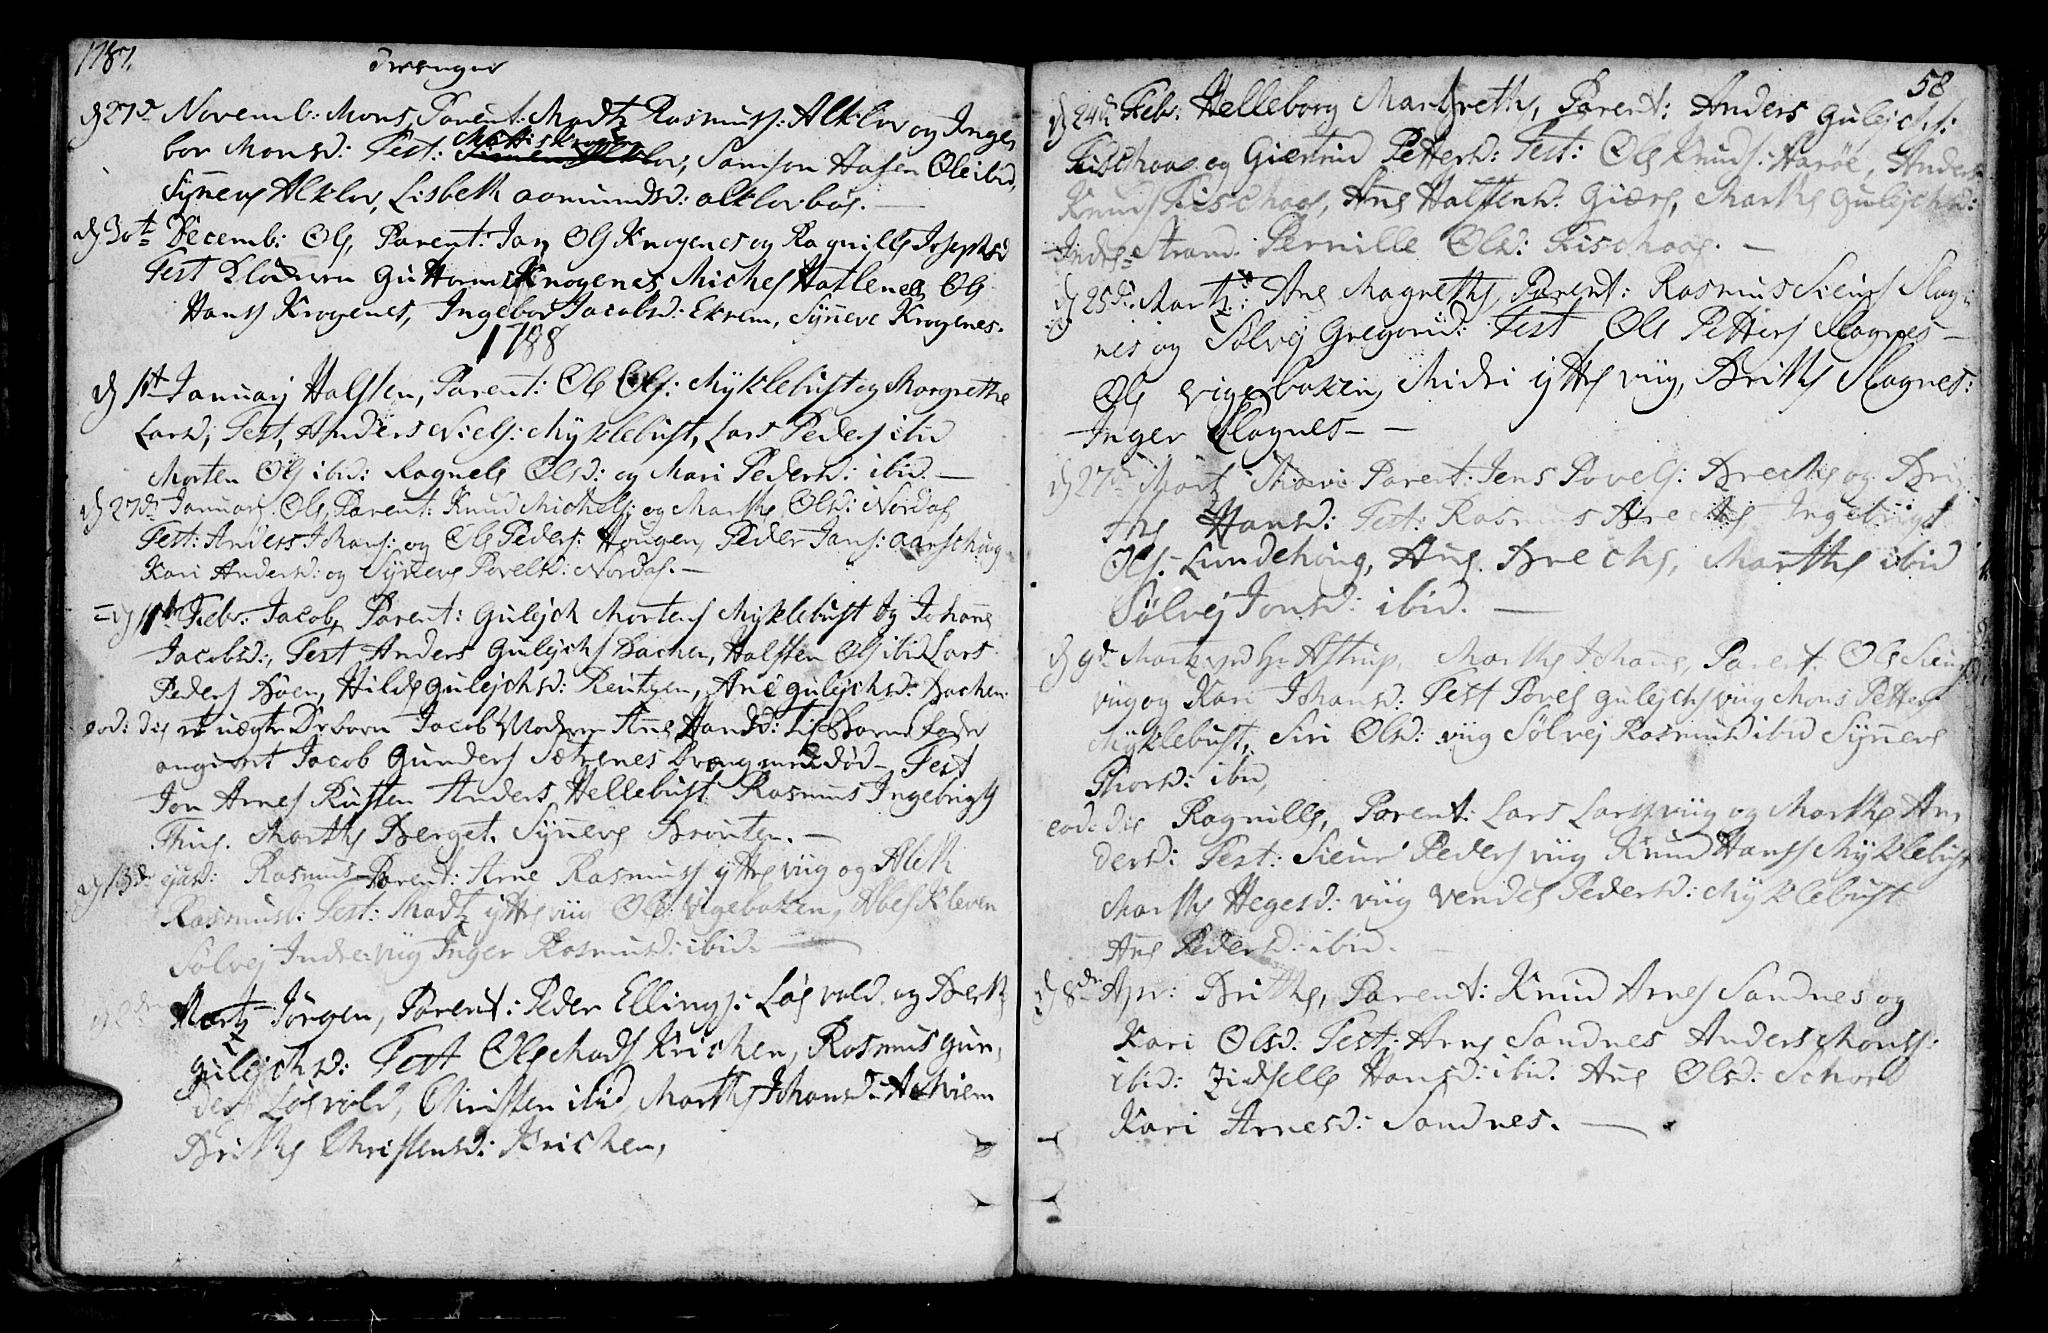 1787.
d 27de Novemb: Mons, Parent: Madtz Rasmuss: Alklov og Inge,
bor Monsd: Test: Samson Hasen Ole ibid,
Synneve Alklov, Lisbeth Aamundsd: alklovbug. —
d 30te Decemb: Ole, Parent: Jan Ols Krogenes og Ragnille Josephsd
Test Guttorms Krogenes, Michel Hatlenes Ole
Hans Krogenes, Ingebor Jacobsd: Ekrem, Synneve Krogenes.
1788
d 1te Januarj Halsten, Parent: Ole Ols: Myklebust og Margrethe
Larsd, Test, Anders Niels: Myklebust, Lars Peders ibid
Morten Ols ibid: Ragnele Olsd: og Mari Pedersd: ibid. —
d 27de Januarj Ole, Parent: Knud Michels: og Marthe Olsd: Nordal
Test: Anders Johans: og Ole Peders: Hougen, Peder Jans: aarschoug
Kari Andersd: og Synneve Povelsd: Nordal. —
d 1te Febr: Jacob, Parent: Gulejch Mortens Myklebust og Johanne
Jacobsd:, Test Anders Gulejchs Bachen, Halsten Ols ibid Lars
Peders Böen, Hilde Gulejchsd: Reitgen, Ane Gulejchsd: Bachen
eod: die et uægte Dr: barn Jacob Moderen Ane Hansd: til Barne fader
angivet Jacob Gunders Sætrenes Test
Jon Arnes Rusten Anders Hellebust Rasmus Ingebrigts
Thue. Marthe Berget. Synneve Bronten. —
d 13de ejusd: Rasmus Parent: Arne Rasmuss ytre viig og Abeth
Rasmusd: Test: Madtz ytre viig Ole Vigebaken, Abel Kleven
Sölvej Indre: viig Inger Rasmusd: ibid. —
Martz Jörgen, Parent: Peder Ellings: Lösvold og Berth
Gulejchsd: Test Ole Mads Krichen, Rasmus Gun,
ders Lösvold, Christen ibid, Marthe Johansd: Achiem
Brithe Christensd: Krichen,
58
d 24de Febr: Helleborg Margrethe, Parent: Anders Gulejchs:
Fischaae og Giertrud Pettersd: Test: Ole Knuds: Haröe, Anders
Knuds Fischaae, Ane Halstensd: Giære, Marthe Gulejchsd:
Indre Strand. Pernille Olsd: Fischaae. —
d 25de Martz: Ane Magrethe, Parent: Rasmus Siurs Slag,
nes og Sölvej Gregorisd: Test Ole Petters Slagnes —
Ole Vigebaken, Midri ytre viig, Brithe Slagnes:
Inger Slagnes —
d 27de Martz Mari Parent: Jens Povels: Breche og Bri,
the Hansd: Test: Rasmus Breche Ingebrigt
Ols. Lundehoug, Ane Breche, Marthe ibid
Sölvej Jonsd: ibid. —
d 9de Martz ved Hr Astrup, Marthe Johanne, Parent: Ole Siurs
viig og Kari Johansd: Test Povel Gulejchs viig Mons Petters
Myklebust, Siri Olsd: viig Sölvej Rasmusd ibid Synneve
Thorsd: ibid,
eod: die Ragnille, Parent: Lars Larss viig og Marthe An,
dersd: Test: Siur Peders viig Knud Hans Myklebust
Marthe Hegesd: viig Vendel Pedersd: Myklebust
Ane Pedersd: ibid.
d 8de Apr: Brithe, Parent: Knud Arnes Sandnes og
Kari Olsd: Test: Arne Sandnes Anders Mons:
ibid: Zidselle Hansd: ibid. Ane Olsd:
Kari Arnesd: Sandnes. —